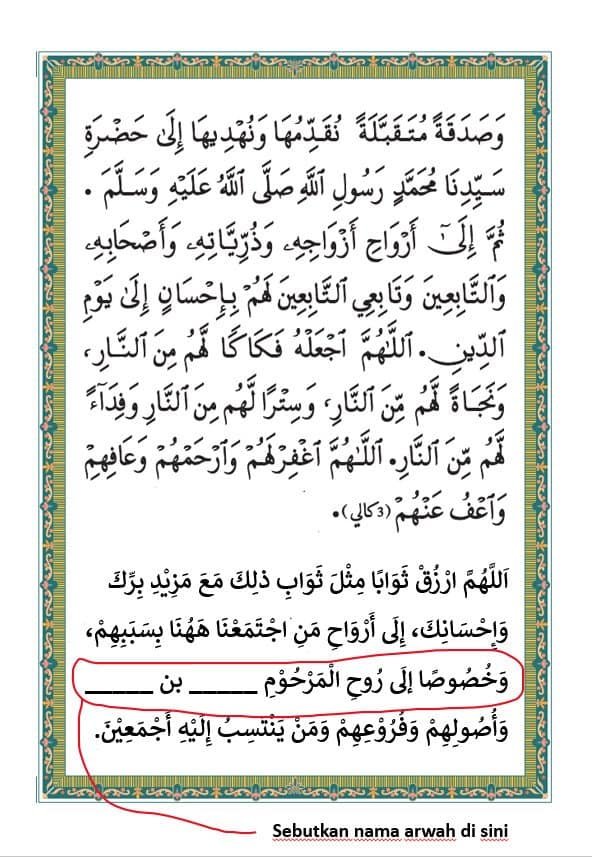 وَصَدَقَةً مُتَقَبَّلَةً نُقَدِّمُهَا وَنُهْدِيهَا إِلَىٰ حَضْرَةِ
سَيِّدِنَا مُحَمَّدٍ رَسُولِ ٱللَّهِ صَلَّى ٱللَّهُ عَلَيْهِ وَسَلَّمَ .
ثُمَّ إِلَىٰٓ أَرْوَاحِ أَزْوَاجِهِۦ وَذُرِّيَّاتِهِۦ وَأَصْحَابِهِۦ
وَٱلتَّابِعِينَ وَتَابِعِي ٱلتَّابِعِينَ لَهُمْ بِإِحْسَانٍ إِلَىٰ يَوْمِ
ٱلدِّينِ. ٱللَّهُمَّ ٱجْعَلْهُ فَكَاكًا لَّهُمْ مِنَ ٱلنَّارِ،
وَنَجَاةً لَّهُمْ مِّنَ ٱلنَّارِ، وَسِتْرًا لَّهُمْ مِنَ ٱلنَّارِ وَفِدَآءً
لَّهُمْ مِّنَ ٱلنَّارِ. ٱللَّهُمَّ ٱغْفِرْ لَهُمْ وَٱرْحَمْهُمْ وَعَافِهِمْ
وَٱعْفُ عَنْهُمْ (3 كالي).
اَللَّهُمَّ ارْزُقْ ثَوَابًا مِثْلَ ثَوَابِ ذٰلِكَ مَعَ مَزِيْدِ بِرِّكَ
وَإِحْسَانِكَ، إِلَى أَرْوَاحِ مَنِ اجْتَمَعْنَا هَهُنَا بِسَبَبِهِمْ،
وَخُصُوصًا إلَى رُوحِ الْمَرْحُوْمِ _____ بن _____
وَأُصُولِهِمْ وَفُرُوْعِهِمْ وَمَنْ يَنْتَسِبُ إِلَيْهِ أَجْمَعِيْنَ.
Sebutkan nama arwah di sini